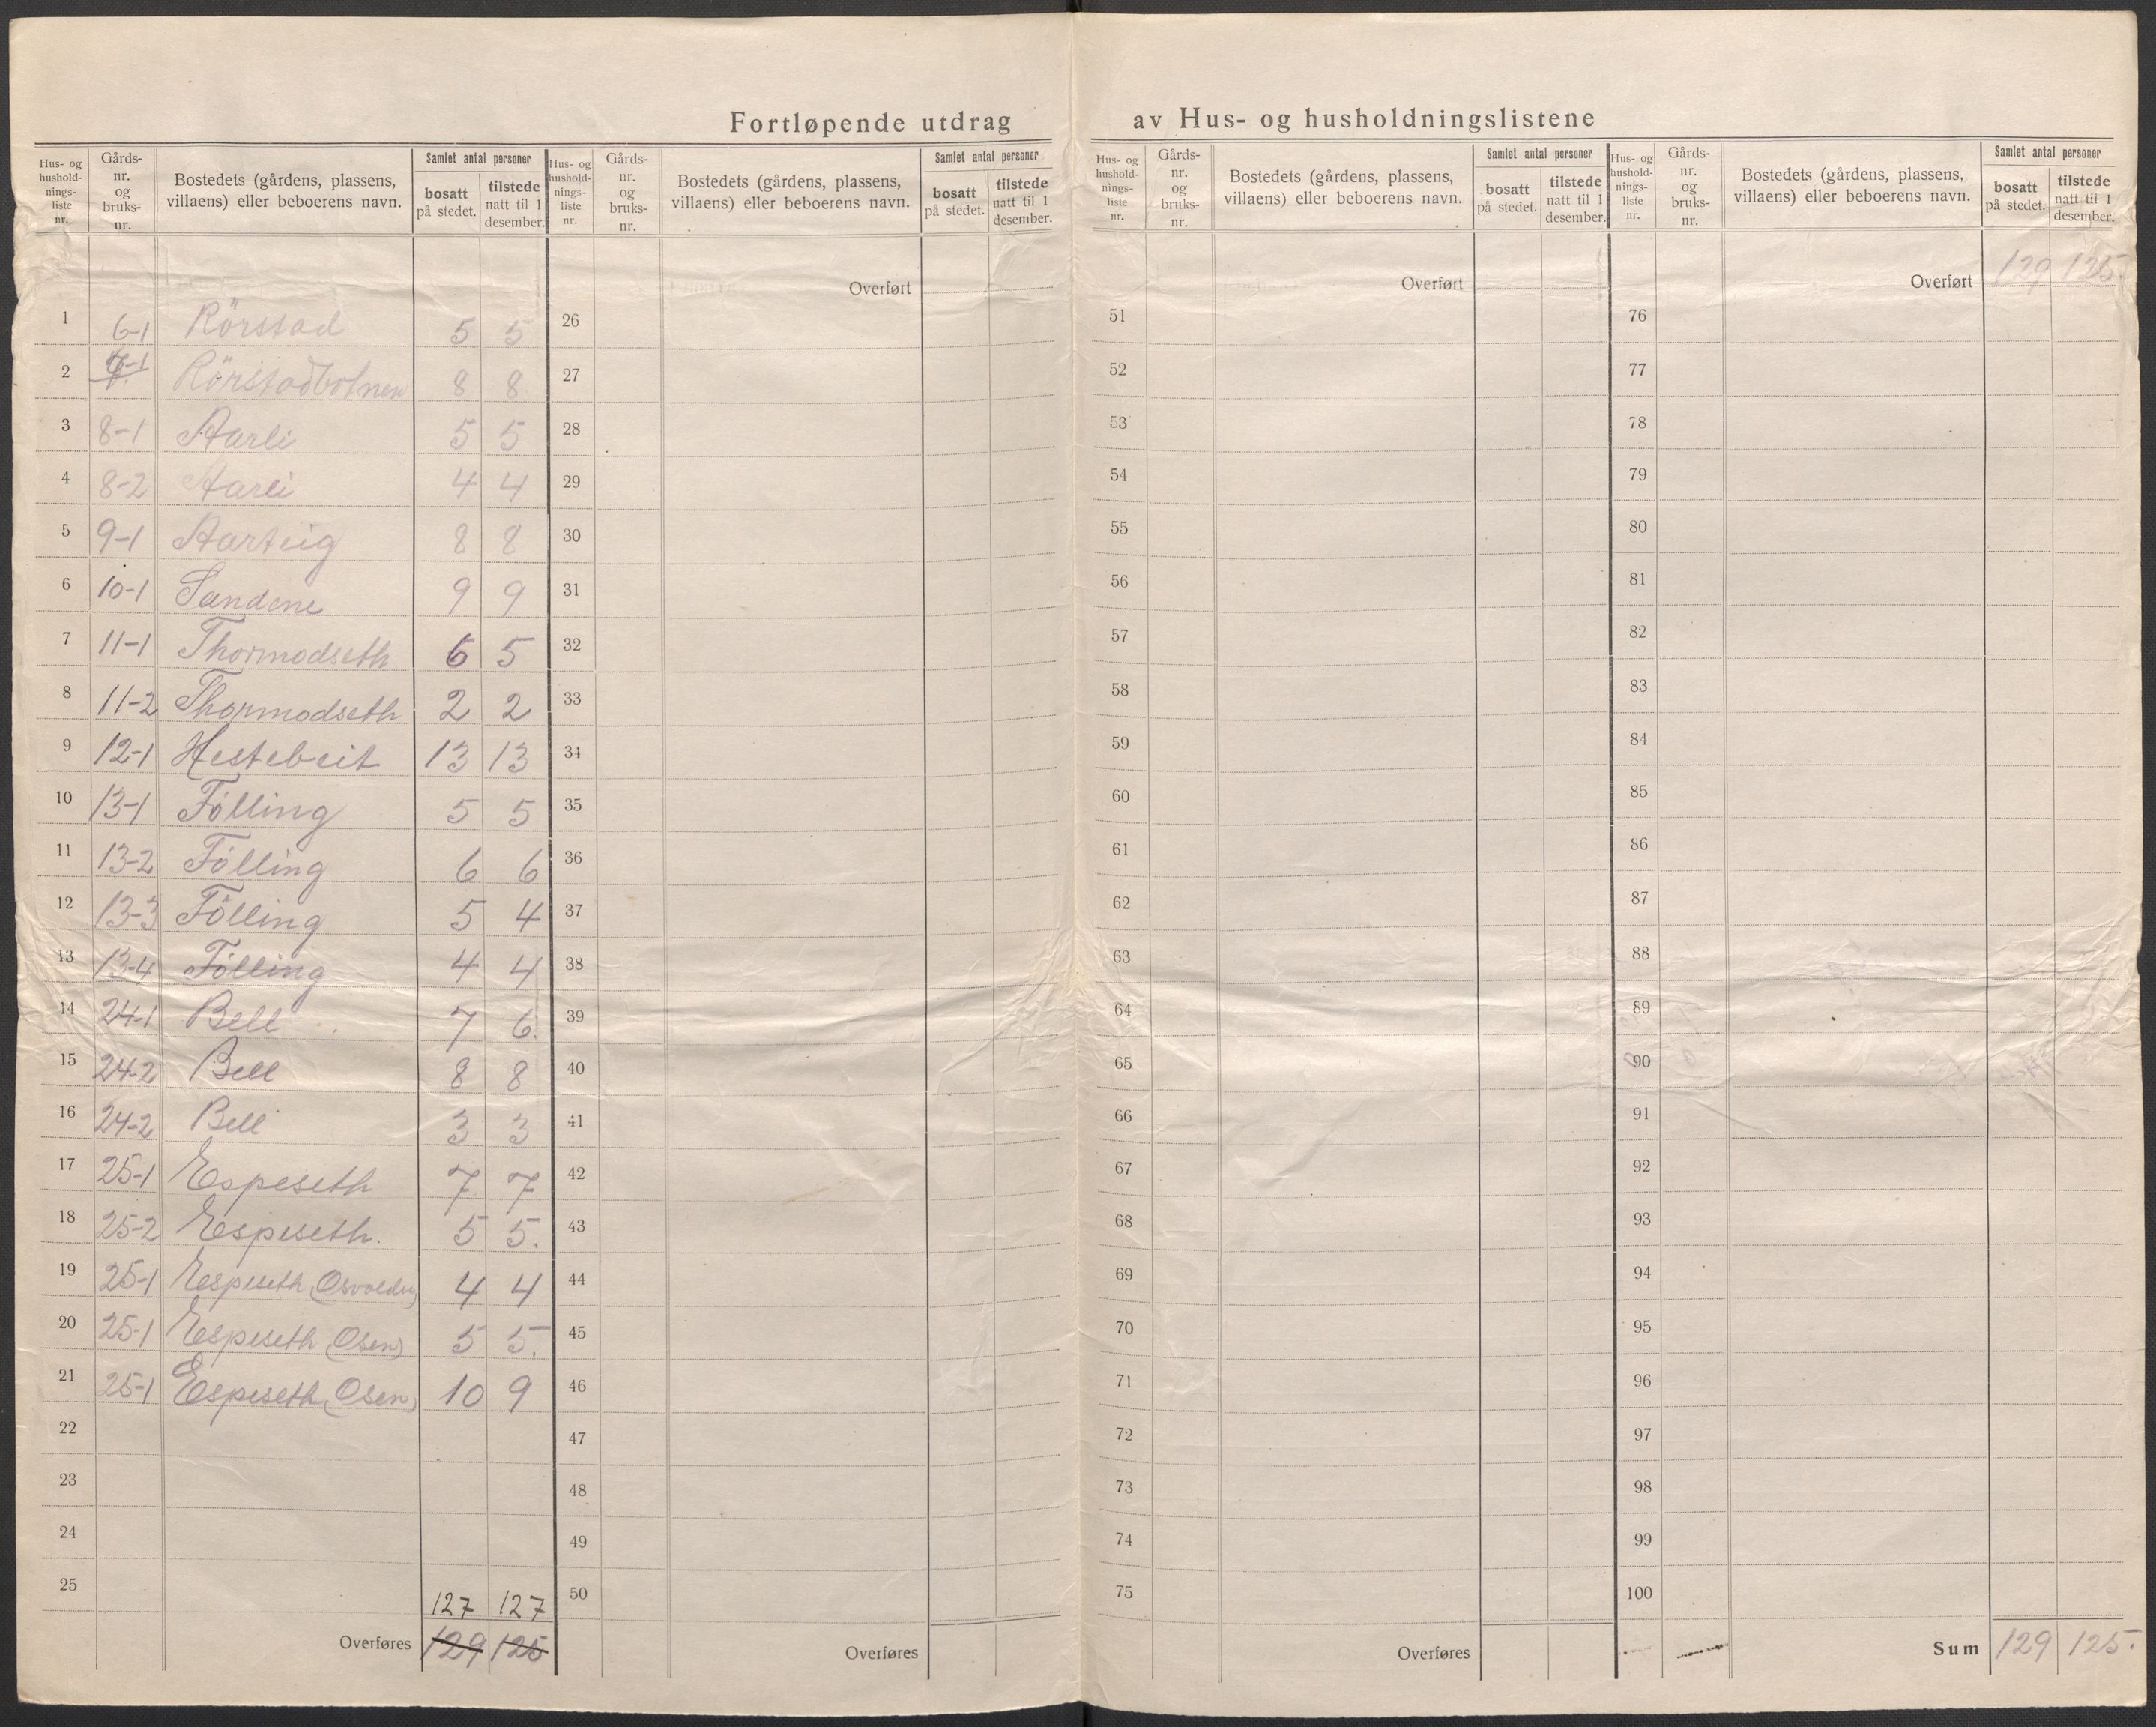 Fortløpende utdrag av Hus- og husholdningslistene
Hus- og hushold-nings-liste nr. Gårds-nr. og bruks-nr. Bostedets (gårdens, plassens, villaens) eller beboerens navn. Samlet antal personer bosatt på stedet. tilstede natt til 1 desember.
1 6-1 Rörstad 5 5
2 7-1 Rörstadbotnen 8 8
3 8-1 Aarli 5 5
4 8-2 Aarli 4 4
5 9-1 Aarteig 8 8
6 10-1 Sandene 9 9
7 11-1 Thormodseth 6 5
8 11-2 Thormodseth 2 2
9 12-1 Hestebeit 13 13
10 13-1 Fölling 5 5
11 13-2 Fölling 6 6
12 13-3 Fölling 5 4
13 13-4 Fölling 4 4
14 24-1 Bell 7 6.
15 24-2 Bell 8 8
16 24-2 Bell 3 3
17 25-1 Espeseth 7 7
18 25-2 Espeseth. 5 5.
19 25-1 Espeseth 4 4
20 25-1 Espeseth (Osen) 5 5.
21 25-1 Espeseth (Osen) 10 9
22
23
24
25
127 127
Overføres 129 125
Hus- og hushold-nings-liste nr. Gårds-nr. og bruks-nr. Bostedets (gårdens, plassens, villaens) eller beboerens navn. Samlet antal personer bosatt på stedet. tilstede natt til 1 desember.
Overført
26
27
28
29
30
31
32
33
34
35
36
37
38
39
40
41
42
43
44
45
46
47
48
49
50
Overføres
Hus- og hushold-nings-liste nr. Gårds-nr. og bruks-nr. Bostedets (gårdens, plassens, villaens) eller beboerens navn. Samlet antal personer bosatt på stedet. tilstede natt til 1 desember.
Overført
51
52
53
54
55
56
57
58
59
60
61
62
63
64
65
66
67
68
69
70
71
72
73
74
75
Overføres
Hus- og hushold-nings-liste nr. Gårds-nr. og bruks-nr. Bostedets (gårdens, plassens, villaens) eller beboerens navn. Samlet antal personer bosatt på stedet. tilstede natt til 1 desember.
Overført 129 125.
76
77
78
79
80
81
82
83
84
85
86
87
88
89
90
91
92
93
94
95
96
97
98
99
100
Sum 129 125.